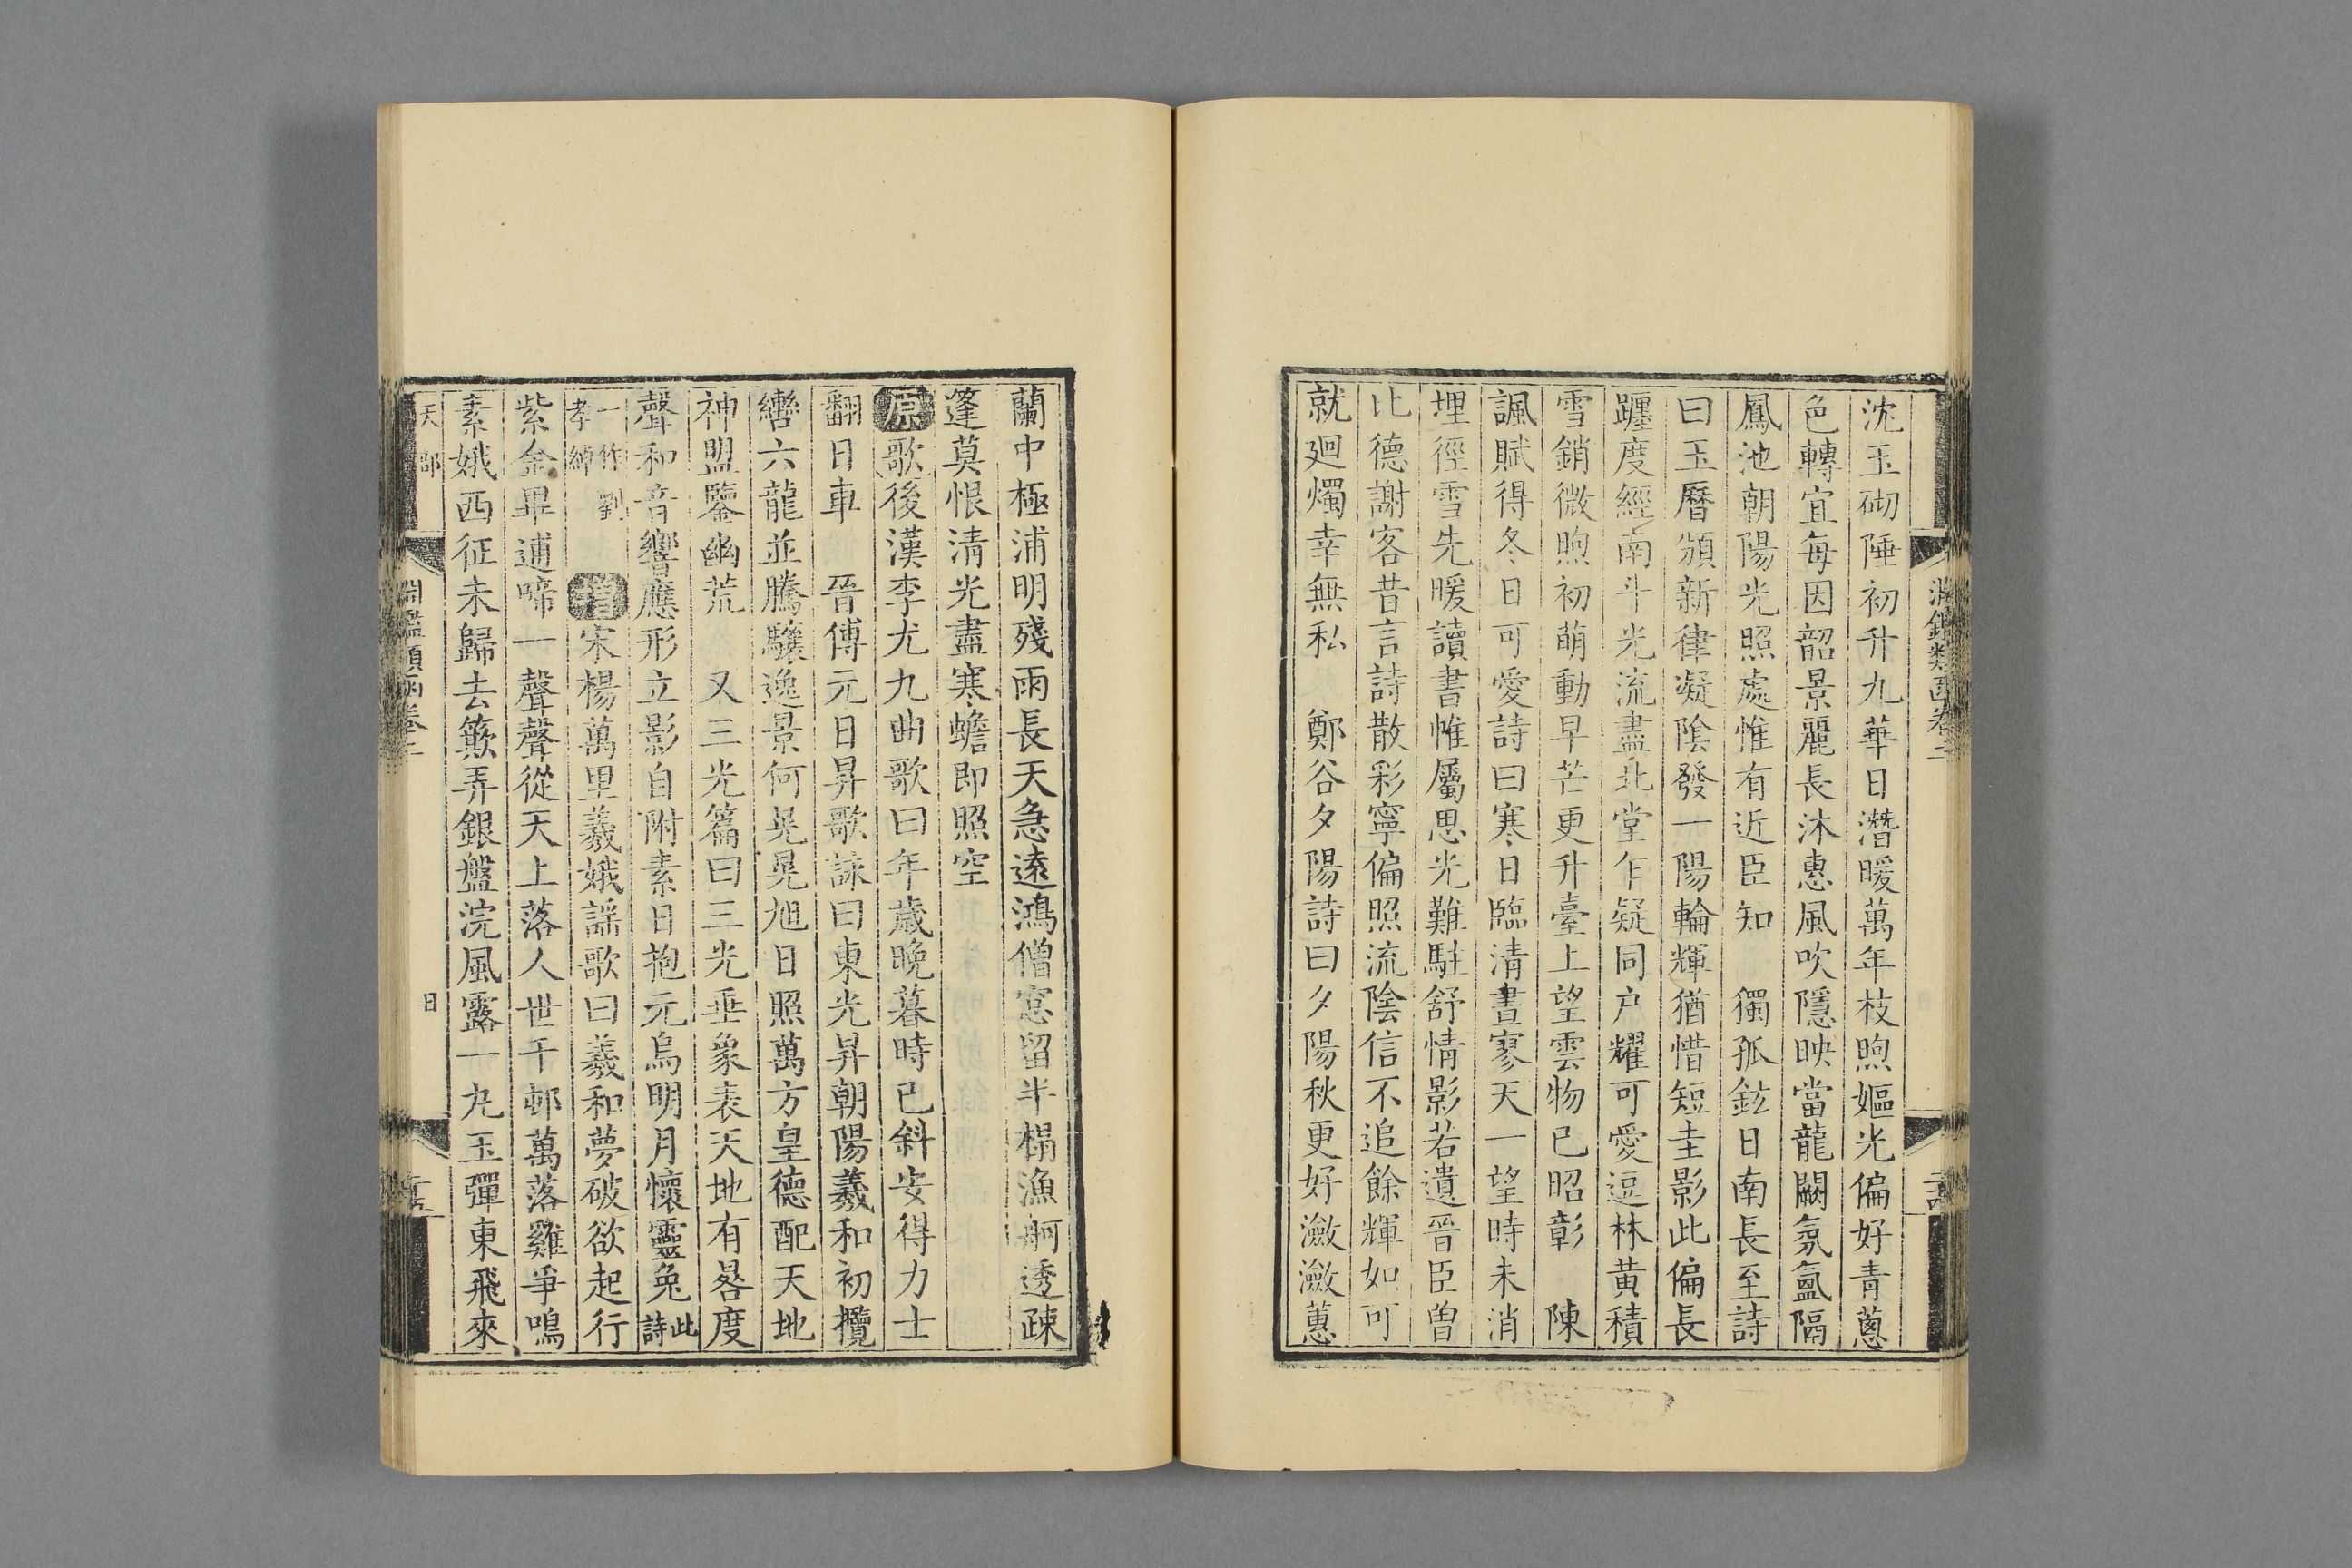 沈玉砌陲初升九華日潛暖萬年枝煦嫗光偏好青蔥
色轉宜每因韶景麗長沐惠風吹隱映當龍闕氛氳隔
鳳池朝陽光照處惟有近臣知　獨孤鉉日南長至詩
曰玉曆頒新律凝陰發一陽輪輝猶惜短圭影此偏長
躔度經南斗光流盡北堂乍疑同户耀可愛逗林黄積
雪銷微煦初萌動早芒更升臺上望雲物已昭彰　陳
諷賦得冬日可愛詩曰寒日臨清晝寥天一望時未消
埋徑雪先暖讀書帷屬思光難駐舒情影若遺晉臣曽
比德謝客昔言詩散彩寧偏照流陰信不追餘輝如可
就廻燭幸無私　鄭谷夕陽詩曰夕陽秋更好瀲瀲蕙
蘭中極浦明殘雨長天急遠鴻僧窓留半榻漁舸透疎
篷莫恨清光盡寒蟾即照空
原歌後漢李尤九曲歌曰年歲晚暮時已斜安得力士
翻日車　晉傅元日昇歌詠曰東光昇朝陽羲和初攬
轡六龍並騰驤逸景何晃晃旭日照萬方皇德配天地
神盟鑒幽荒　又三光篇曰三光垂象表天地有晷度
聲和音響應形立影自附素日抱元烏明月懷靈兔此詩
一作劉孝綽　增宋楊萬里羲娥謡歌曰羲和夢破欲起行
紫金畢逋啼一聲聲從天上落人世千邨萬落雞爭鳴
素娥西征未歸去簸弄銀盤浣風露一丸玉彈東飛來
淵鑑類函卷二
天部
日